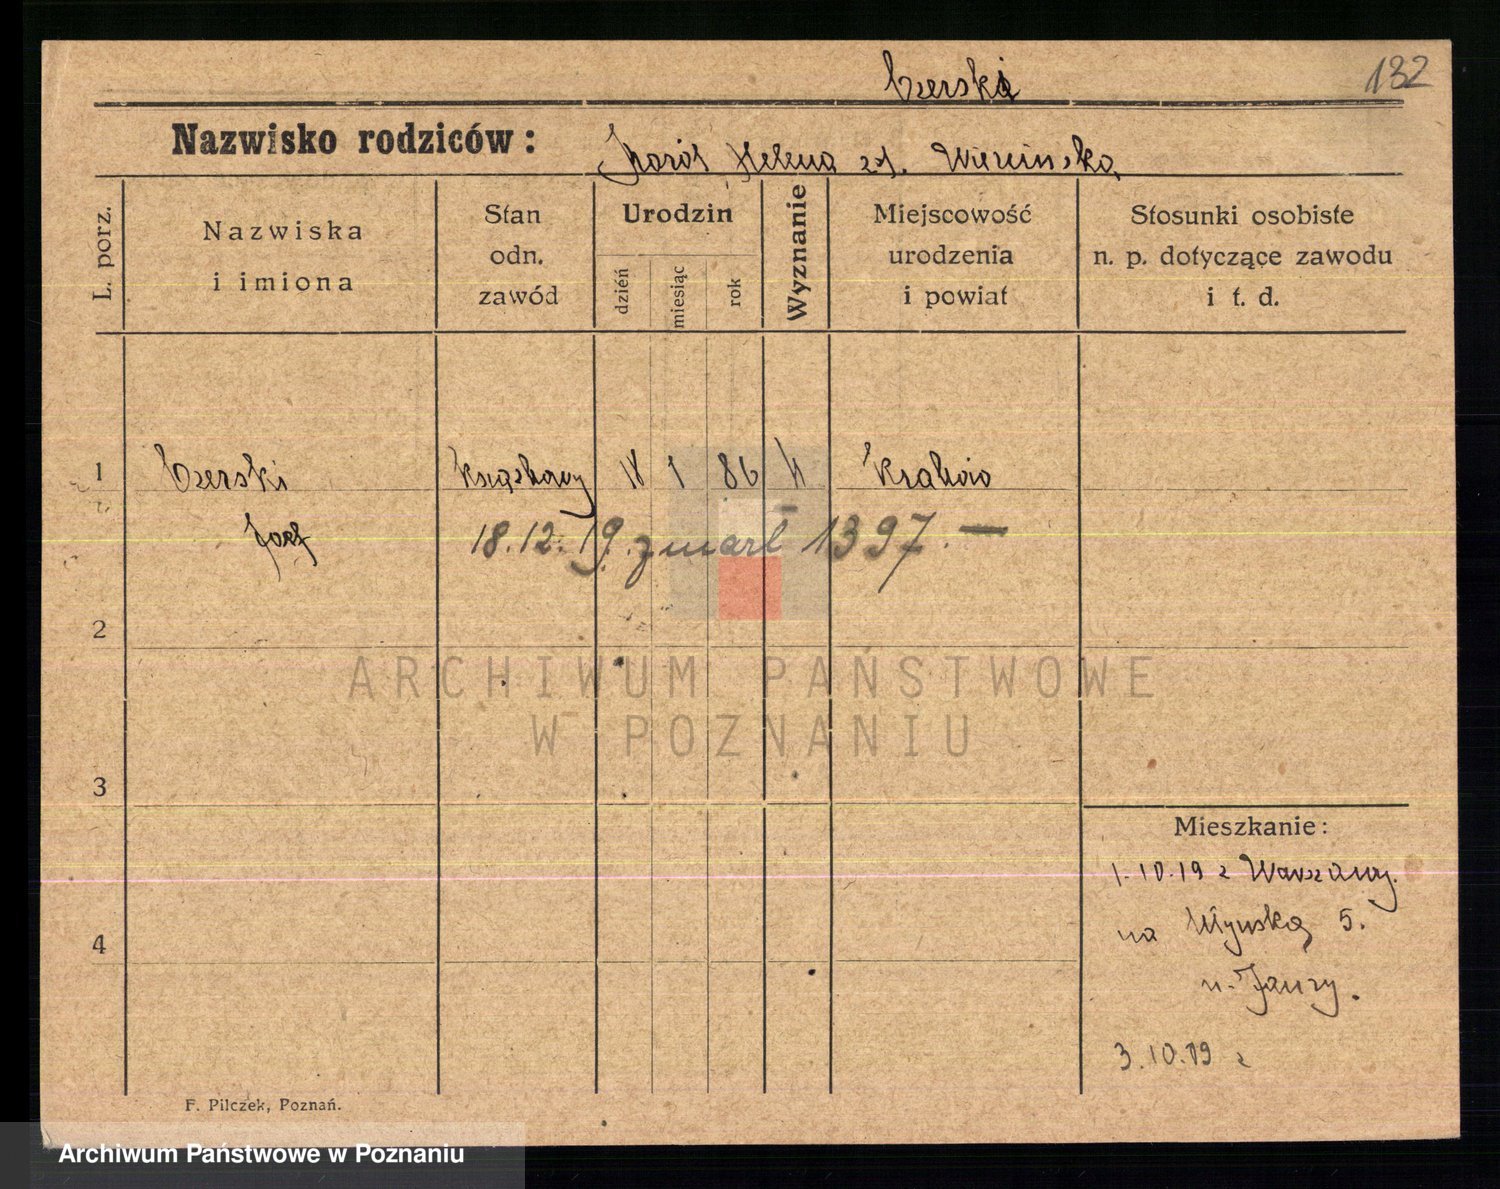 Czerski
132
Nazwisko rodziców: Karól Helena z d. Wiercińska
L. porz.
Nazwiska i imiona
Stan odn. zawód
Urodzin
dzién miesiąc rok
Wyznanie
Miejscowość urodzenia i powiat
Stosunki osobiste n. p. dotyczące zawodu i t. d.
1 Czerski Księgowy 18 1 86 k Kraków
Józef 18.12.19. zmarł 1397. —
2
ARCHIWUM PAŃSTWOWE
W POZNANIU
3
Mieszkanie:
1.10.19 z Warszawy.
na Młyńską 5.
4
u.
3.10.19 z
F. Pilczek, Poznań.
Archiwum Państwowe w Poznaniu